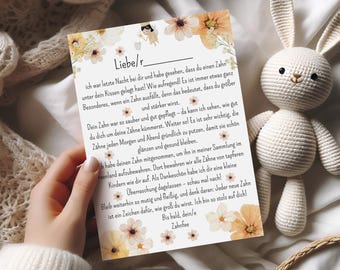 Liebe/r__________
ich war letzte Nacht bei dir und habe gesehen, dass du einen Zahn
unter dein Kissen gelegt hast! Wie aufregend! Es ist immer etwas ganz
Besonderes, wenn ein Zahn ausfällt, denn das bedeutet, dass du größer
und stärker wirst.
Dein Zahn war so sauber und gut gepflegt – da kann ich sehen, wie gut
du dich um deine Zähne kümmerst. Weiter so! Es ist sehr wichtig, die
Zähne jeden Morgen und Abend gründlich zu putzen, damit sie schön
glänzen und gesund bleiben.
habe deinen Zahn mitgenommen, um ihn in meiner Sammlung
aufzubewahren. Dort bewahren wir alle Zähne von tapferen
Kindern wie dir auf. Als Dankeschön habe ich dir eine kleine
Überraschung dagelassen – schau mal nach!
Bleib weiterhin so mutig und fleißig, und denk daran: Jeder neue Zahn
ist ein Zeichen dafür, wie groß du wirst. Ich bin so stolz auf dich!
Bis bald, dein/e
Zahnfee